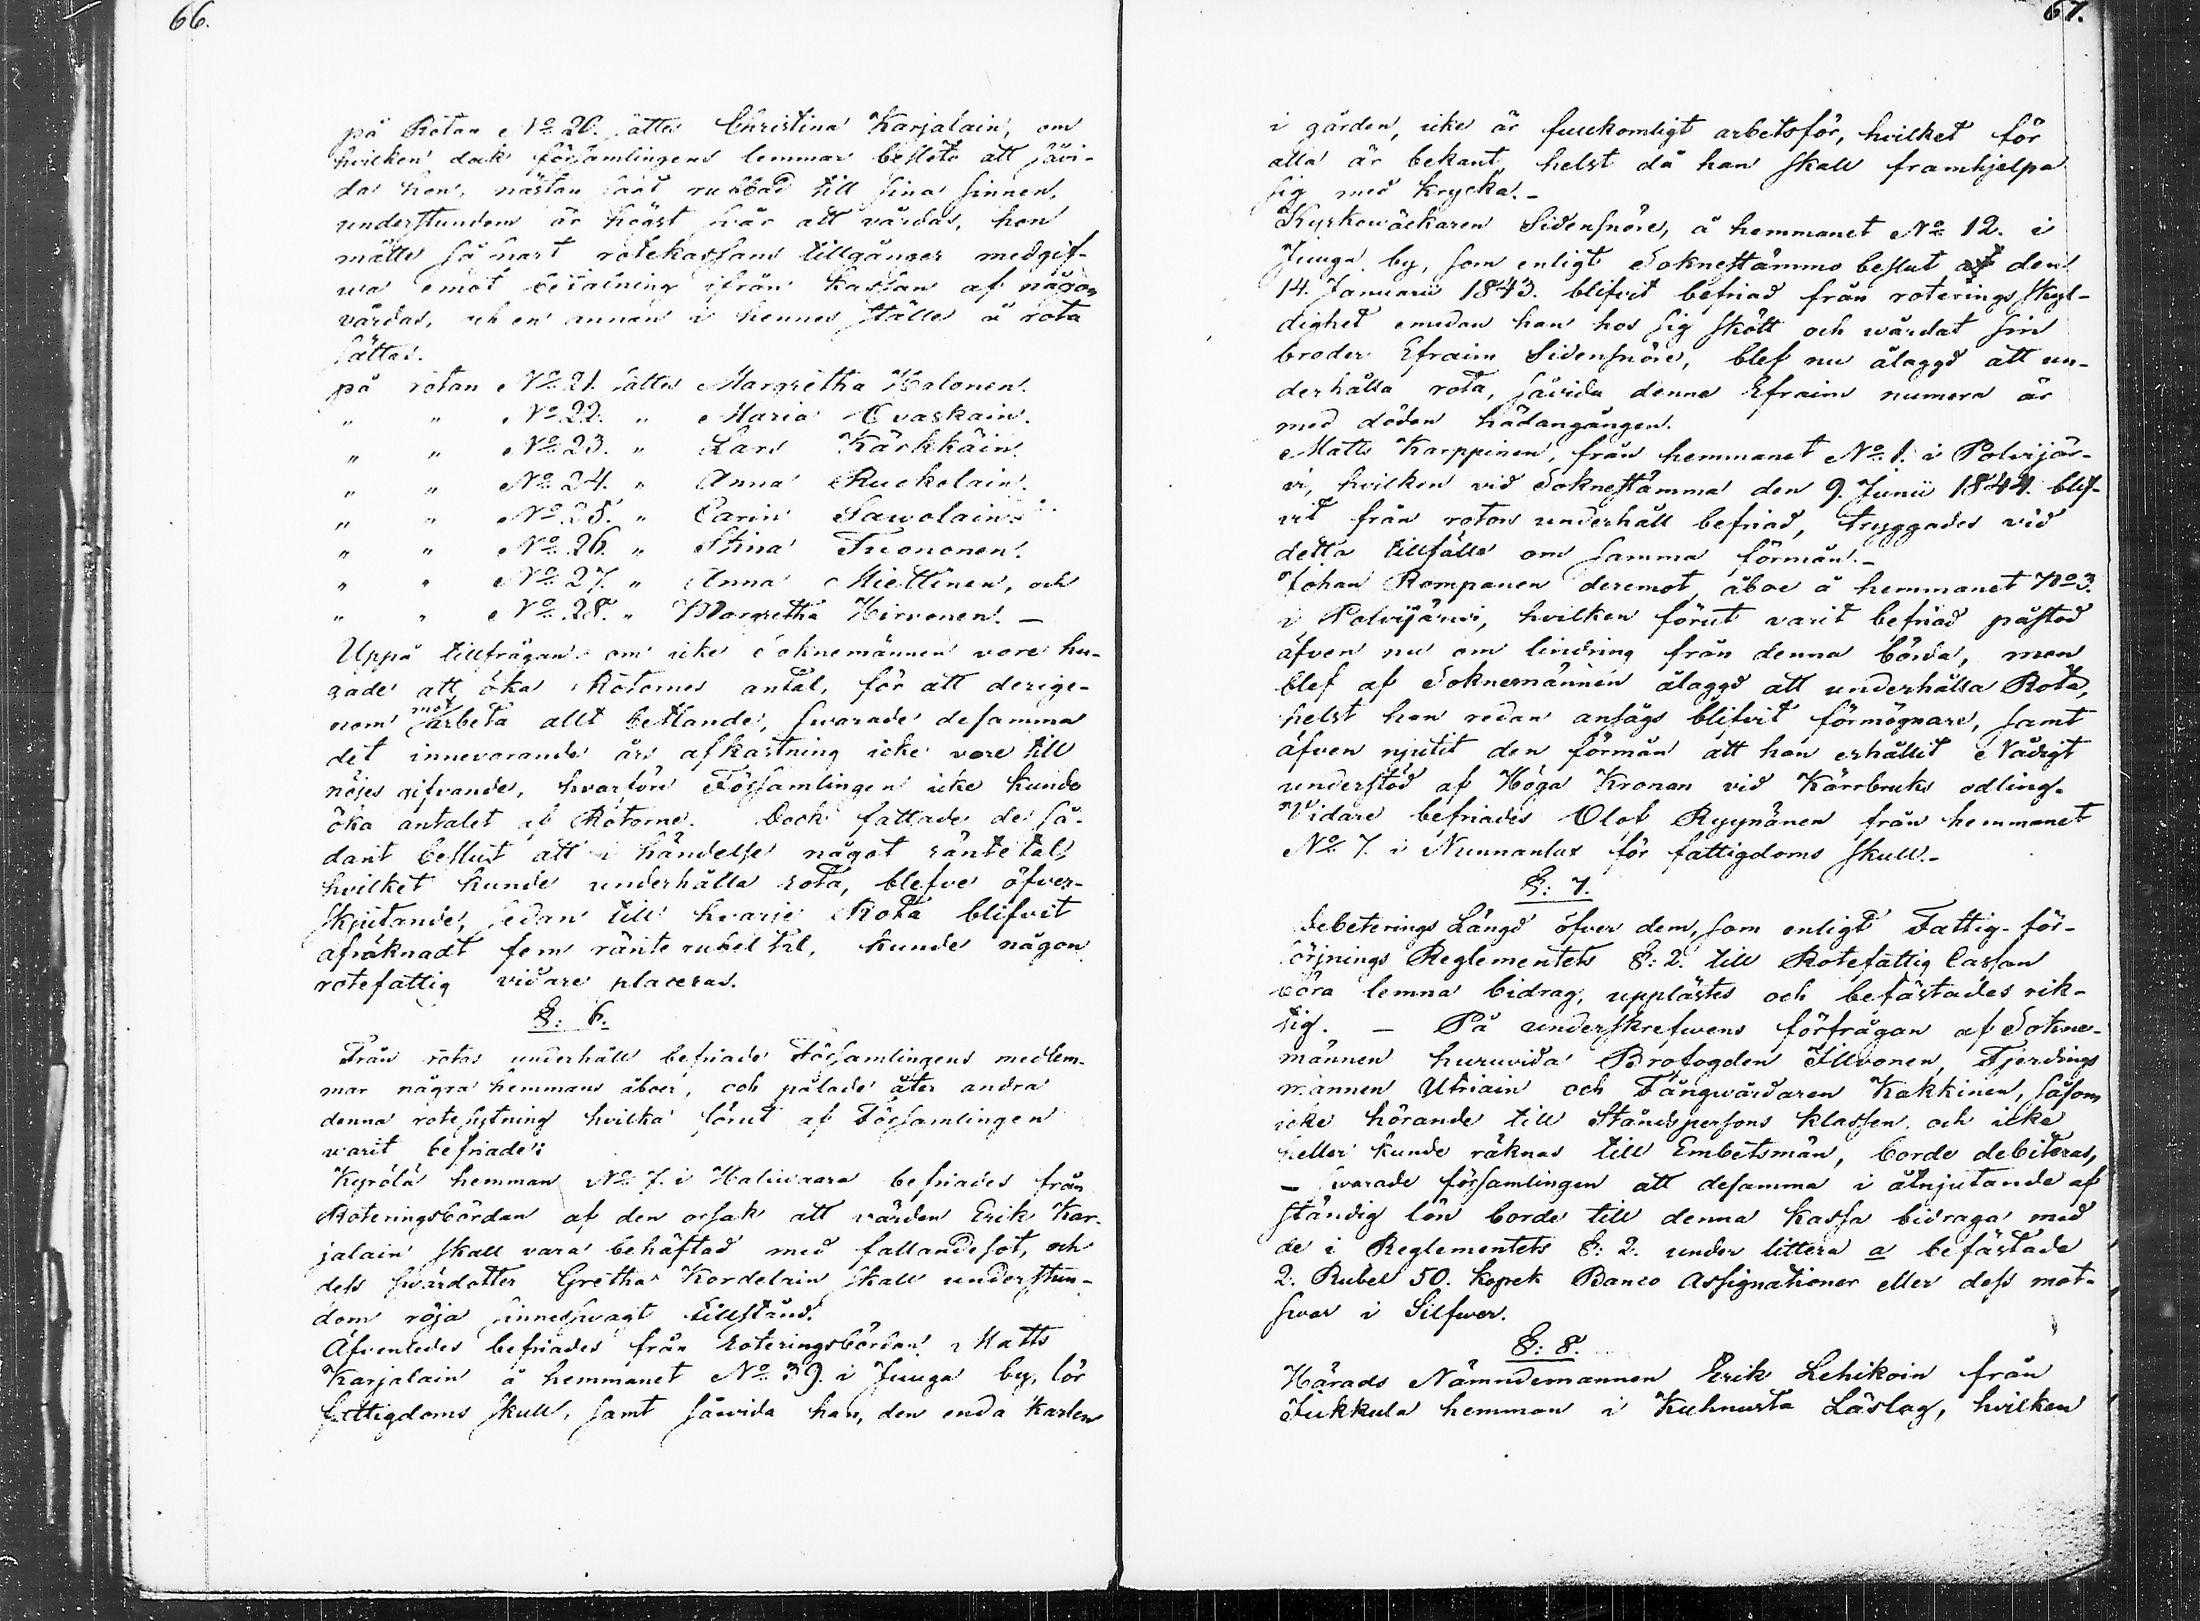 66.
på Rotan No 20. sättes Christina Karjalain, om
hvilken dock församlingens lemmar beslöto att såvi-
da hon, nästan såat rubbad till sina sinnen,
understundom är högst svår att vårdas, hon
måtte så snart rotekassans tillgånger medgif-
wa emot betalning ifrån kassan af någon
vårdas, och en annan i hennes ställe å rota
sättas.
på rotan No 21. sättes Margretha Halonen.
" " No 22. " Maria Ovaskain.
" " No 23. " Lars Kärkkäin.
" " No 24. " Anna Ruokolain.
" " No 25. " Carin Sawolain.
" " No 26. " Stina Tuononen.
" " No 27. " Anna Miettinen, och
" " No 28. " Margretha Hirvonen. —
Uppå tillfrågan om icke Soknemännen vore hu-
gade att öka Rotornes antal, för att derige-
nom motarbeta allt betlande, swarade desamma
det innevarande års afkastning icke vore till
nöjes gifvande, hvarföre Församlingen icke kunde
öka antalet af Rotorne. Dock fattade de så-
dant beslut att i händelse något räntetal,
hvilket kunde underhålla rota, blefve öfver-
skjutande, sedan till hvarje Rota blifvit
afräknadt fem ränte rubel tal, kunde någon
rotefattig vidare placeras.
§: 6.
Från rotas underhåll befriade Församlingens medlem-
mar några hemmans åboer, och pålade åter andra
denna rotesystning hvilka förut af Församlingen
warit befriade:
Kyrölä hemman No 7. i Haliwaara befriades från
Roteringsbördan af den orsak att värden Erik Kar-
jalain skall vara behäftad med fallandesot, och
dess swärdotter Gretha Kordelain skall understun-
dom röja sinnesswagt tillstånd.
Äfvenledes befriades från roteringsbördan Matts
Karjalain å hemmanet No 39. i Juuga by, för
fattigdoms skull, samt såwida han, den enda karlen
67.
i gården, icke är fullkomligt arbetsför, hvilket för
alla är bekant, helst då han skall framhjelpa
sig med krycka. –
Kyrkowäckaren Sidensnöre, å hemmanet No 12. i
Juuga by, som enligt Soknestämmo beslut af den
14. Januarii 1843. blifvit befriad från roterings skyl-
dighet emedan han hos sig skött och wårdat sin
broder Efraim Sidensnöre, blef nu ålaggd att un-
derhålla rota, såvida denne Efraim numera är
med döden hädangången.
Matts Karppinen, från hemmanet No 1. i Polvijär-
vi, hvilken vid Soknestämma den 9. Junii 1844. blif-
vit från rotans underhåll befriad, tryggades vid
detta tillfälle om samma förmån. –
Johan Rompanen deremot, åboe å hemmanet No 3.
i Polvijärvi, hvilken förut varit befriad påstod
äfven nu om lindring från denna börda, men
blef af Soknemännen ålaggd att underhålla Rota,
helst han redan ansågs blifvit förmögnare, samt
äfven njutit den förmån att han erhållit Nådigt
understöd af Höga Kronan vid Kärrbruks odling.
Vidare befriades Olof Ryynänen från hemmanet
No 7. i Nunnanlax för fattigdoms skull. –
§: 7.
Debeterings Längd öfver dem, som enligt Fattig-för-
sörjnings Reglementets §: 2. till Rotefattig Cassan
böra lemna bidrag, upplästes och befästades rik-
tig. – På underskrefwens förfrågan af Sokne-
männen huruvida Brofogden Illvonen, Fjerdings
männen Utriain och Fångwårdaren Kakkinen, såsom
icke hörande till Ståndspersons klassen, och icke
heller kunde räknas till Embetsmän, borde debiteras,
– swarade församlingen att desamma i åtnjutande af
ständig lön borde till denna kassa bidraga med
de i Reglementets §: 2. under littera a befästade
2. Rubel 50. kopek Banco Assignationer eller dess mot-
swar i Silfwer.
§: 8.
Härads Nämndemannen Erik Lehikoin från
Jukkula hemman i Kuhnusta Läslag, hvilken